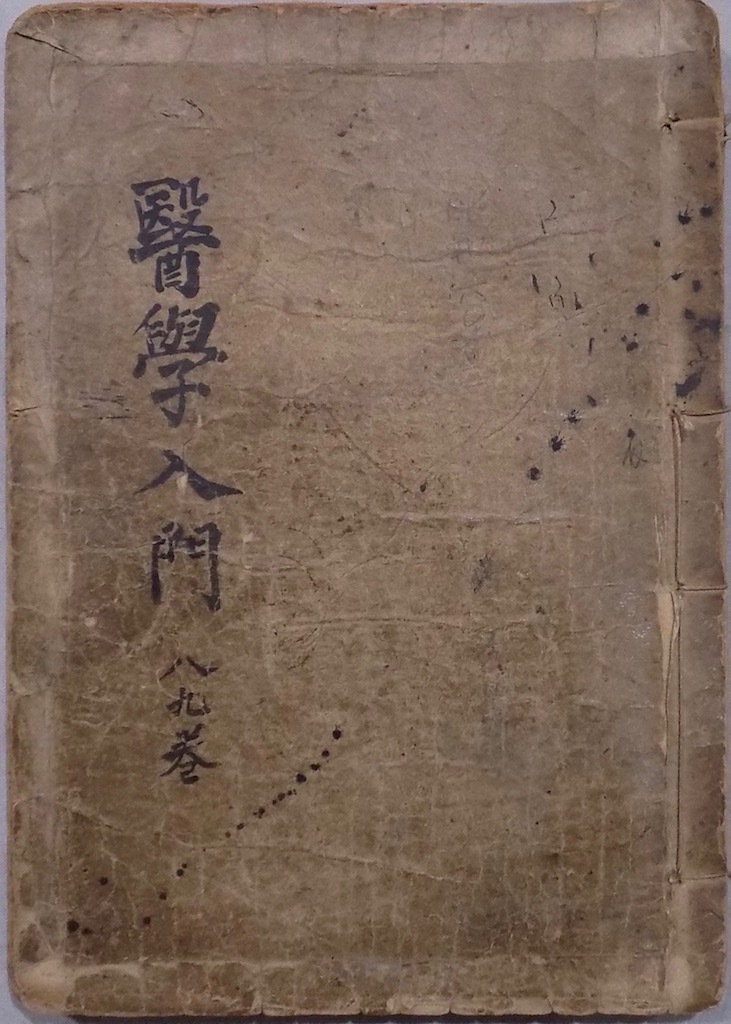 醫學入門 八九卷